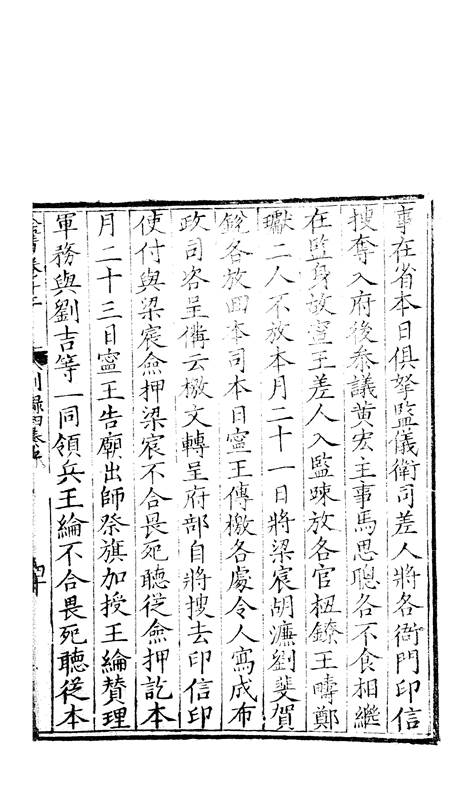 事在省本日俱拏監儀衛司差人將各衙門印信
搜奪入府後叅議黃宏主事馬思聰各不食相繼
在監身故寧王差人入監疎放各官杻鐐王疇鄭
瓛二人不放本月二十一日將梁宸胡濂劉斐賀
銳各放回本司本日寧王傳檄各處令人寫成布
政司咨呈備云檄文轉呈府部自將搜去印信印
使付與梁宸僉押梁宸不合畏死聽從僉押訖本
月二十三日寧王告廟出師祭旗加授王綸贊理
軍務與劉吉等一同領兵王綸不合畏死聽從本